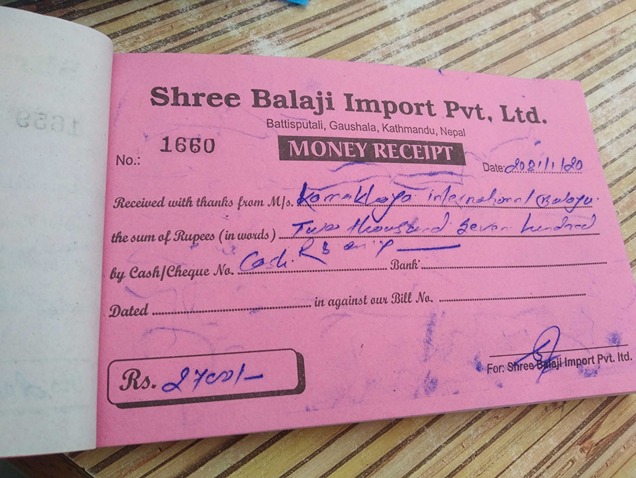 Shree Balaji Import Pvt, Ltd.
Battisputali, Gaushala, Kathmandu, Nepal
No.: 1660
MONEY RECEIPT
Date: 2021/1/20
Received with thanks from M/s. international
the sum of Rupees (in words) Two thousand seven hundred
Rs only
by Cash/Cheque No. Cash. Bank:
Dated in against our Bill No.
Rs. 2700/-
For: Shree Balaji Import Pvt. ltd.
1659